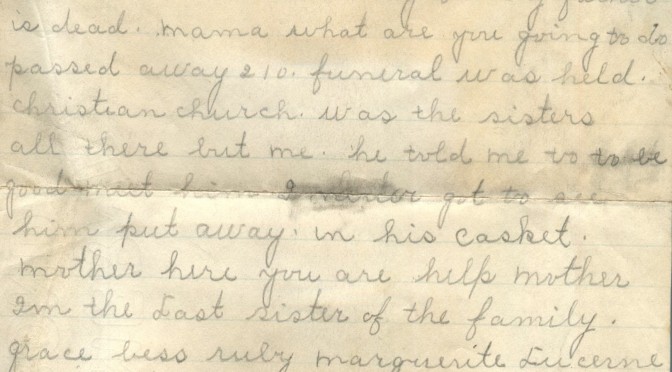 is dead. mama what are you going to do
passed away 210. funeral was held.
christian church. was the sisters
all there but me. he told me to to be
good meet him I never got to see
him put away. in his casket.
mother here you are help mother
Im the Last sister of the family.
grace bess ruby marguerite Lucerne